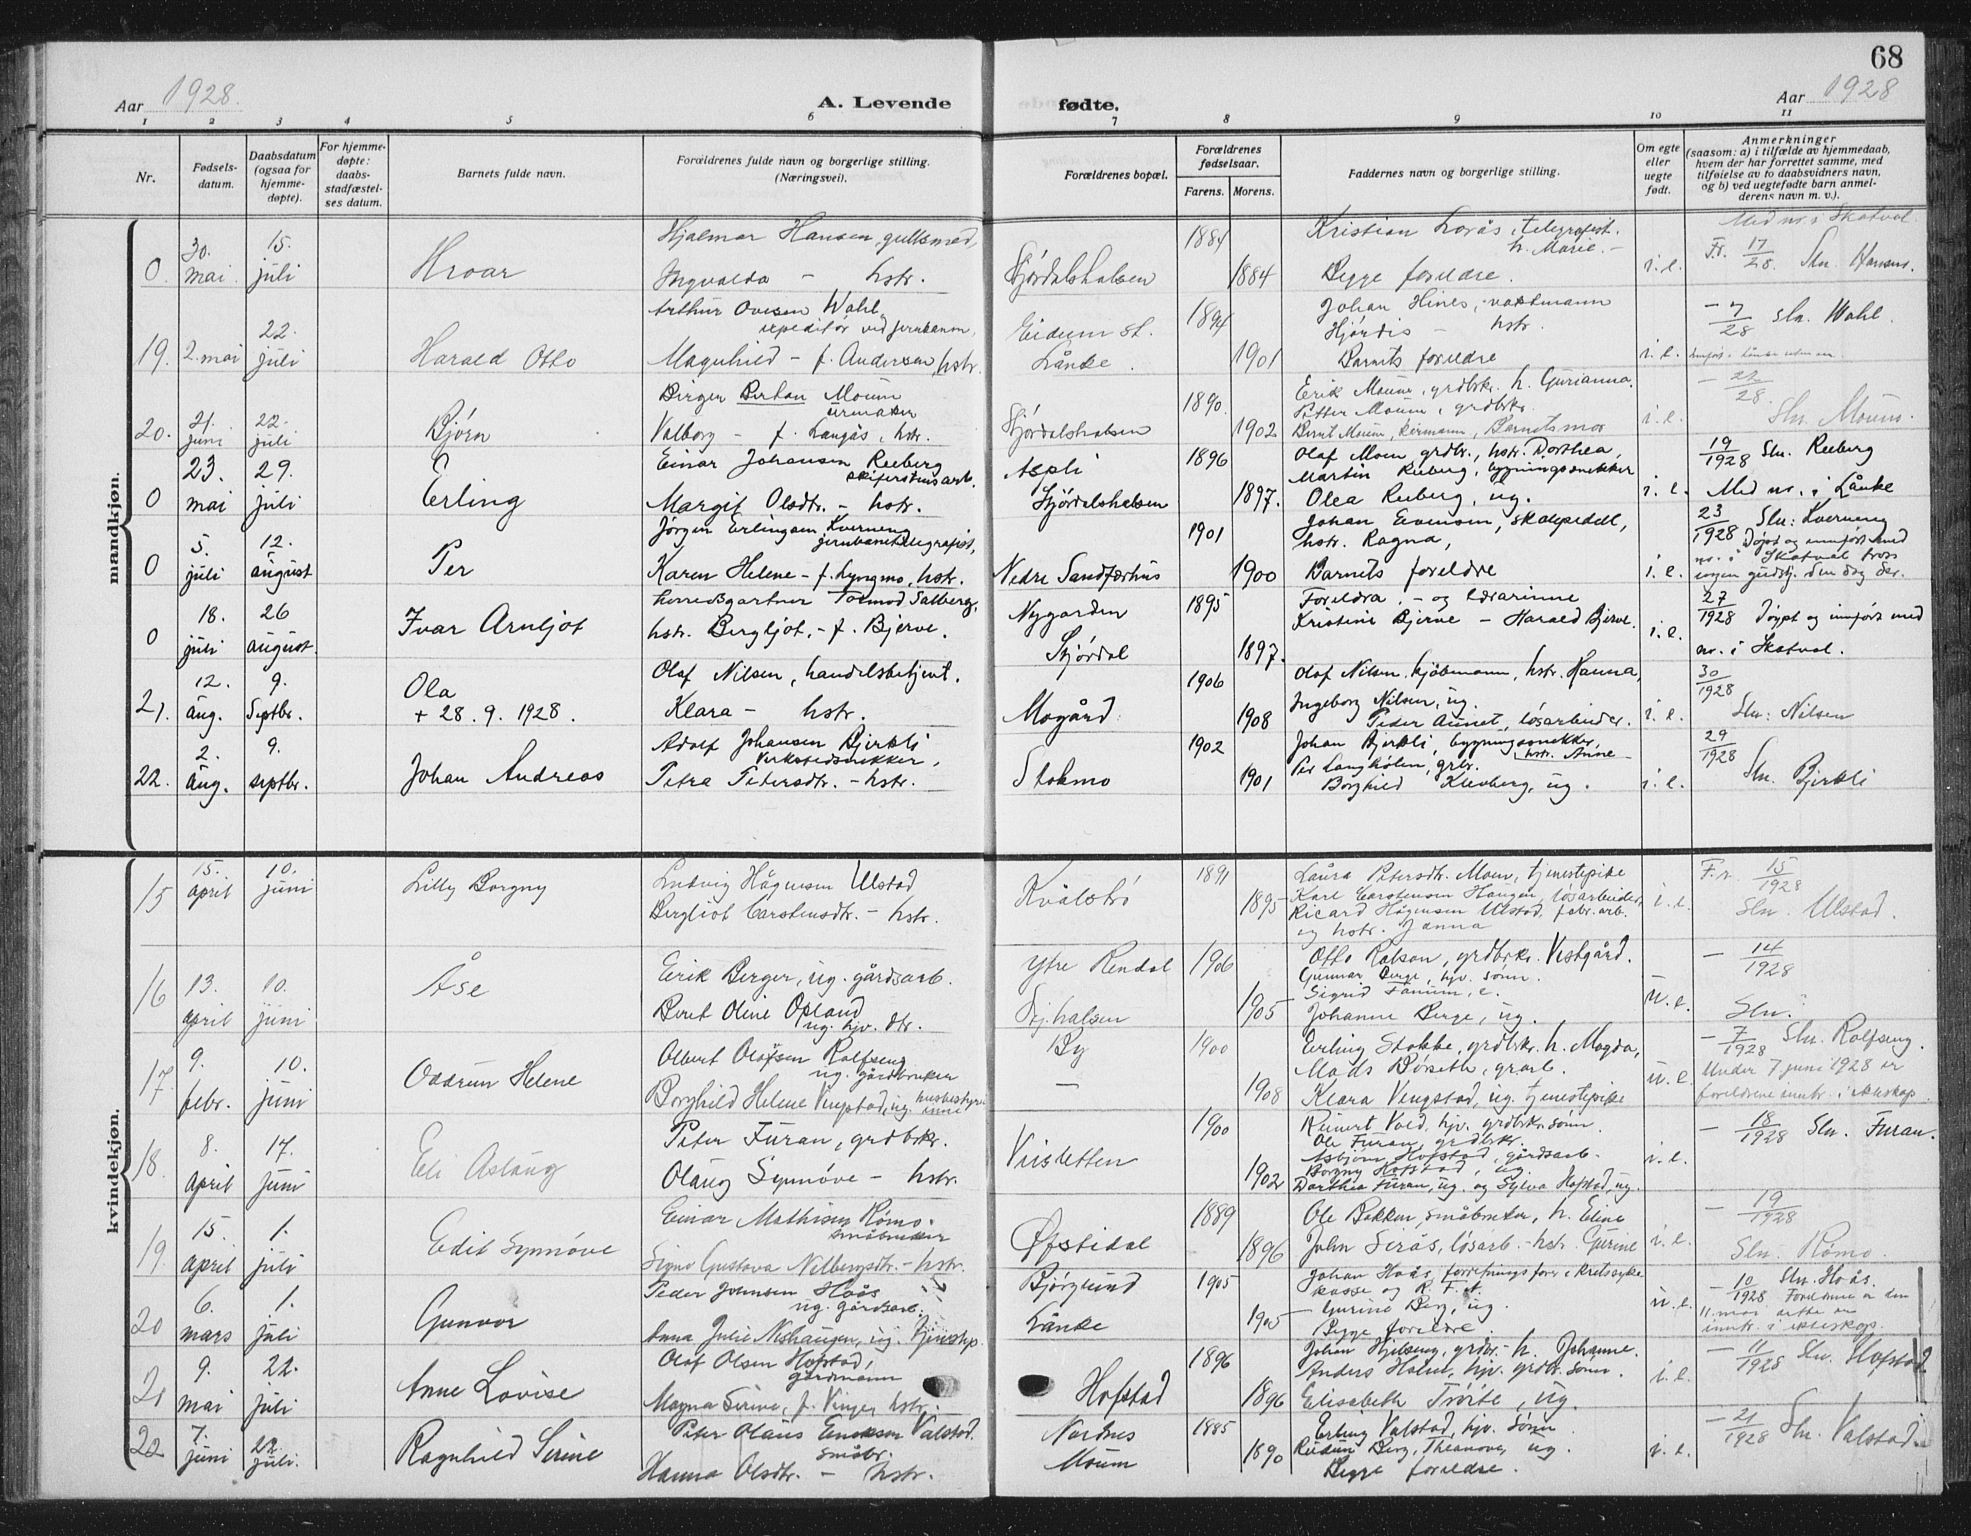 68
Aar 1928.
A. Levende
fødte.
Aar 1928
1 2 3 4 5 6 7 8 9 10 11
Nr.
Fødsels-
datum.
Daabsdatum
(ogsaa for
hjemme-
døpte).
For hjemme-
døpte:
daabs-
stadfæstel-
ses datum.
Barnets fulde navn.
Forældrenes fulde navn og borgerlige stilling.
(Næringsvei).
Forældrenes bopæl.
Forældrenes
fødselsaar.
Farens. Morens.
Faddernes navn og borgerlige stilling.
Om egte
eller
uegte
født.
Anmerkninger
(saasom: a) i tilfælde av hjemmedaab,
hvem der har forrettet samme, med
tilføielse av to daabsvidners navn,
og b) ved uegtefødte barn anmel-
derens navn m. v.).
mandkjøn.
0 30. mai 15. juli Hroar
Hjalmar Hansen, gullsmed,
Ingvalda — hstr.
Stjørdalshalsen 1884 1884
Kristian Lorås, telegrafist.
h. Marie. —
Begge foreldre.
i. e.
Med nr. i Skatval.
Fr. 17/28. Sln. Hansen.
19. 2. mai 22. juli Harald Otto
Arthur Ovesen Wahl,
expeditør ved jernbanen,
Magnhild — f. Andersen, hstr.
Eidum st.
Lånke.
1894 1901
Johan Hines, vaktmann
Hjørdis — hstr.
Barnets foreldre
i. e.
— 7/28 sln. Wahl.
20. 21. juni 22. juli Bjørn
Birger Bertau Moum
urmaker
Valborg — f. Langås, hstr.
Stjørdalshalsen 1890. 1902
Erik Moum, grdbrkr. h. Gurianna.
Petter Moum, grdbrkr.
Bernt Moum, Barnets mor
i. e.
— 22/28.
Sln. Moum.
0 23. mai 29. juli Erling
Einar Johansen Reeberg
skiferstensarb.
Margit Olsdtr. — hstr.
Aspli
Stjørdalshalsen
1896 1897.
Olaf Moen grdbr., hstr. Dorthea,
Martin Reeberg, bygningssnekker
Olea Reeberg, ug.
i. e.
19/1928 Sln. Reeberg
Med nr. i Lånke
0 5. juli 12. august Per
Jørgen Erlingsen Kverning
jernbanetelegrafist,
Karen Helene — f. Lyngmo, hstr.
Nedre Sandferhus
1901 1900
Johan Evensen, skolepedell,
hstr. Ragna,
Barnets foreldre
i. e.
23/1928 Sln: Kverning
Døpt og innført med
nr. i Skatval tross
ingen gudstj. den dag der.
0 18. juli 26 august. Ivar Arnljot
Tormod Salberg,
hstr. Bergljot, — f. Bjerve.
Nygarden
Stjørdal
1895 1897.
Foreldra — og lærarinne
Kristine Bjerve — Harald Bjerve.
i. e.
27/1928 Døypt og innført med
nr. i Skatval.
21. 12. aug. 9. Septbr. Ola
+ 28. 9. 1928.
Olaf Nilsen, handelsbetjent.
Klara — hstr.
Mogård 1906 1908
Olaf Nilsen, kjøbmann, hstr. Hanna,
Ingeborg Nilsen, ug.
Peder Aunet, løsarbeider.
i. e.
30/1928
Sln: Nilsen
22. 2. aug. 9. septbr. Johan Andreas
Adolf Johansen Bjerkli
verkstedsnekker,
Petra Petersdtr. — hstr.
Stokmo 1902 1901
Johan Bjerkli, bygningssnekker,
hstr. Anne —
Per Langhølen, grbr.
Borghild Klevberg, ug.
i. e.
29/1928
Sln. Bjerkli
kvindekjøn.
15 15. april 10. juni Lilly Borgny
Ludvig Hågensen Ulstad
Bergliot Carstensdtr. — hstr.
Kvålstrø 1891 1895
Laura Petersdtr. Moen, tjenestepike
Karl Carstensen Haugen, løsarbeider,
Ricard Hågensen Ulstad, fabr. arb.
og hstr. Janna
i. e.
F. n. 15/1928
Sln. Ulstad.
16 13. april 10. juni Åse
Eirik Berger, ug. gårdsarb.
Beret Oline Opland
ug. hjv. dtr.
Ytre Rendal
Stj. halsen
1906 1905
Otto Rolson, grdbrkr. Vestgård.
Gunnar Berge, hjv. sønn.
Sigrid Fanum, e.
Johanne Berge, ug.
u. e.
— 14/1928
Sln.
17 9. febr. 10. juni Oddrun Helene
Olbert Olafsen Rolfseng
ug. gårdbruker
Borghild Helene Vengstad, ug. husbestyrerinne
By
—
1900 1908
Erling Stokke, grdbrkr. h. Magda,
Mads Børseth, grarb.
Klara Vengstad, ug. tjenestepike
u. e.
— 7/1928 Sln. Rolfseng.
Under 7 juni 1928 er
foreldrene inntr. i ekteskap
18. 8. april 17. juni Eli Aslaug
Peter Furan, grdbrkr.
Olaug Synnøve — hstr.
Vinsletten 1900 1902
Reinert Vold, hjv. grdbrkr. sønn.
Ole Furan, grdbrkr.
Asbjørn Hofstad, gårdsarb.
Borgny Hofstad, ug.
Dorthea Furan, ug. og Sylva Hofstad, ug.
i. e.
— 18/1928 Sln. Furan.
19. 15. april 1. juli Edit Synnøve
Einar Mathisen Rømo.
småbruker
Signe Gustava Nilbergsdtr. — hstr.
Øfstidal 1889 1896
Ole Bakken, småbruker, h. Eline
John Serås, løsarb. — hstr. Gurine
i. e.
— 19/1928
Sln. Rømo.
20 6. mars 1. juli Gunvor
Peder Johnsen Hoås
ug. gårdsarb.
Anna Julie Neshaugen, ug. tjenestep.
Bjørglund
Lånke
1905 1905
Johan Hoås, forretningsfører i kretssyke
kasse og R. F. A.
— Gurine Berg, ug.
Begge foreldre.
u. e.
— 10/1928 Sln. Hoås.
Foreldrene er den
11. mai dette år
inntr. i ekteskap.
21 9. mai 22. juli Anne Lovise
Olaf Olsen Hofstad,
gårdmann
Magna Serine, f. Vinger, hstr.
Hofstad 1896 1896
Johan Hjelseng, grdbr. h. Johanne.
Anders Holm, hjv. grdbr. sønn.
Elisabeth Trøite, ug.
i. e.
— 11/1928 Sln. Hofstad
22 7. juni 22. juli. Ragnhild Serine
Peter Olaus Eriksen Valstad.
småbr.
Hanna Olsdtr. — hstr.
Nordnes
Moum
1885 1890
Erling Valstad, hjv. sønn
Reidun Berg, Theanova, ug.
Begge foreldre.
i. e.
— 21/1928 Sln. Valstad.